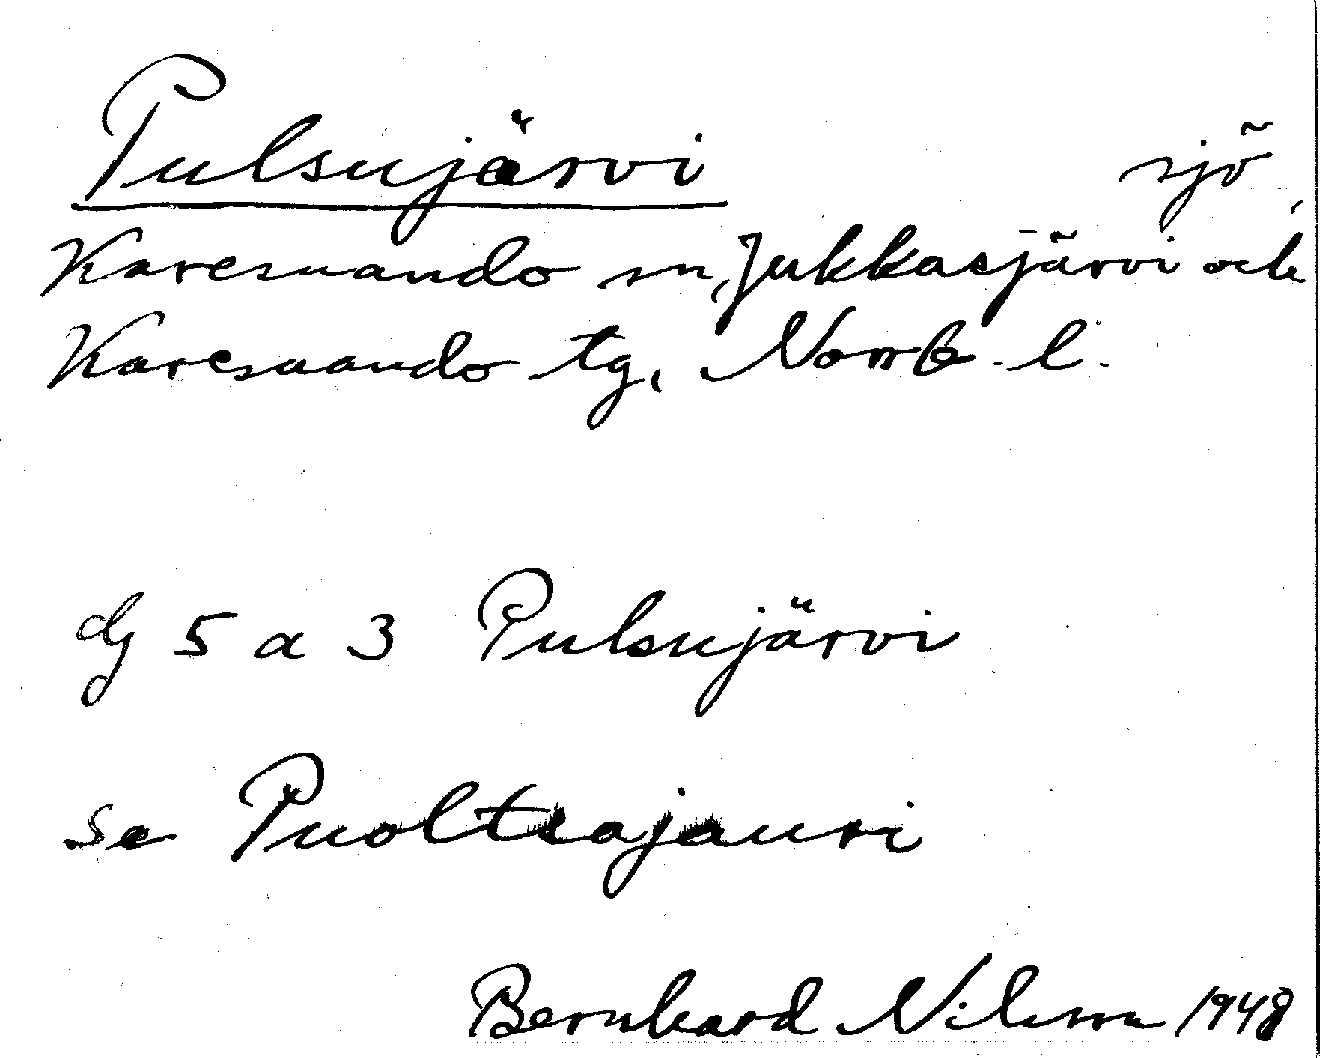 Pulsujärvi sjö,
Karesuando sn, Jukkasjärvi och
Karesuando tg, Norrb. l.
dg 5 a 3 Pulsujärvi
se Puoltsajauri
Bernhard Nilsson 1948